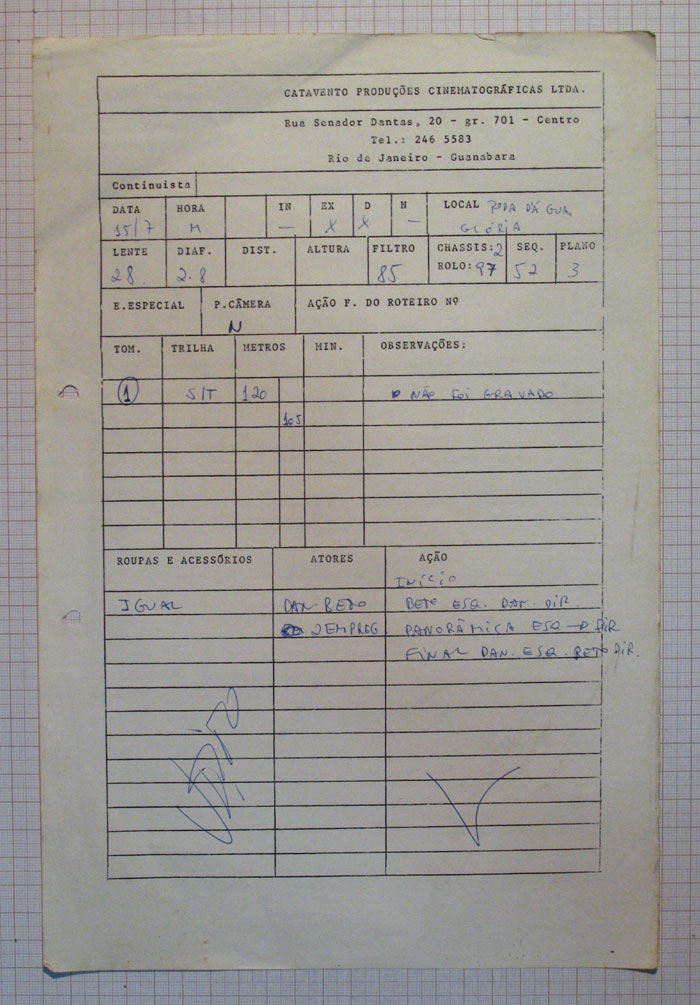 CATAVENTO PRODUÇÕES CINEMATOGRÁFICAS LTDA.
Rua Senador Dantas, 20 - gr. 701 - Centro
Tel.: 246 5583
Rio de Janeiro - Guanabara
Continuista
DATA HORA IN EX D N LOCAL RODA DÁGUA
15/7 M — X X — GLÓRIA
LENTE DIAF. DIST. ALTURA FILTRO CHASSIS: 2 SEQ. PLANO
28. 2.8 85 ROLO: 97 52 3
E.ESPECIAL P.CÂMERA AÇÃO F. DO ROTEIRO Nº
N
TOM. TRILHA METROS MIN. OBSERVAÇÕES:
1 S/T 120 NÃO FOI GRAVADO
105
ROUPAS E ACESSÓRIOS ATORES AÇÃO
INÍCIO
IGUAL DAN-BETO BETO ESQ. DAN. DIR.
2 EMPREG. PANORÂMICA ESQ → DIR
FINAL DAN. ESQ. BETO DIR.